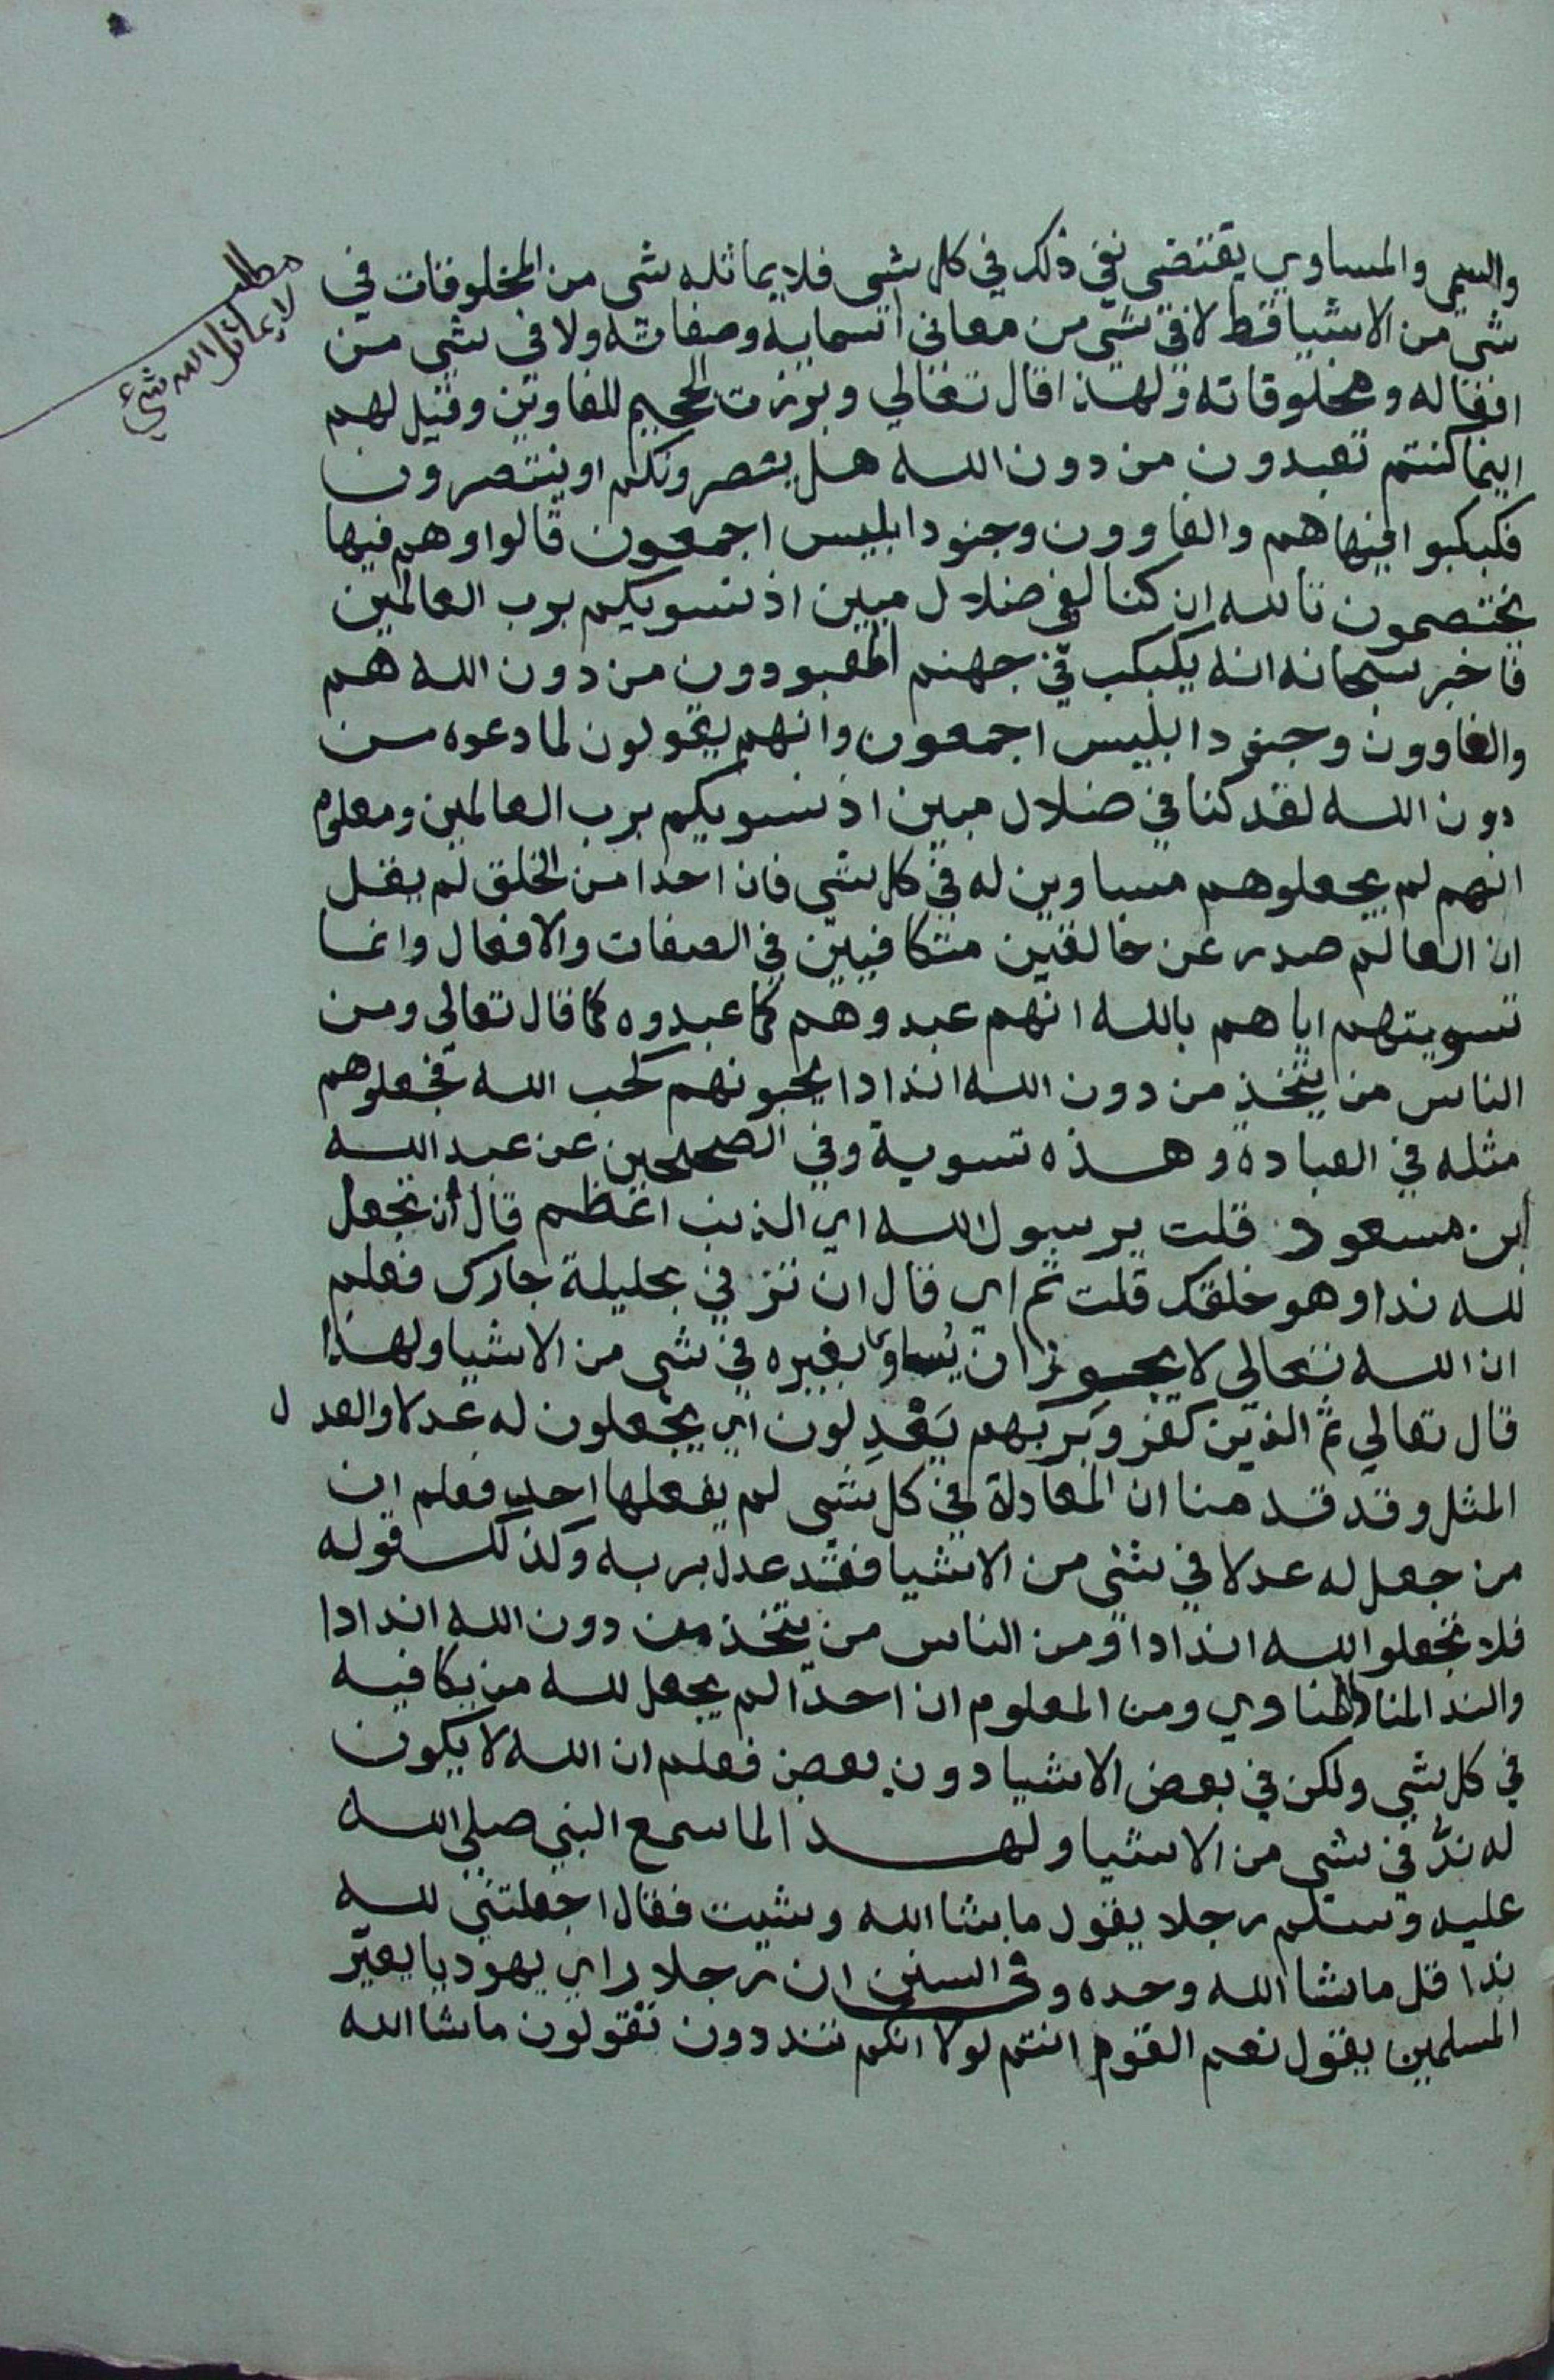 والسمي والمساوي يقتضي نفي ذلك في كل شي فلا يماثله شي من المخلوقات في
شي من الاشيا قط لا في شي من معاني اسمايه وصفاته ولا في شي من
افعاله ومخلوقاته ولهذا قال تعالي وبرزت الجحيم للغاوين وقيل لهم
اينما كنتم تعبدون من دون الله هل ينصرونكم او ينتصرون
فكبكبوا فيها هم والغاوون وجنود ابليس اجمعون قالوا وهم فيها
يختصمون تالله ان كنا لفي ضلال مبين اذ نسويكم برب العالمين
فاخبر سبحانه انه يكبكب في جهنم المعبودون من دون الله هم
والغاوون وجنود ابليس اجمعون وانهم يقولون لما دعوه من
دون الله لقد كنا في ضلال مبين اذ نسويكم برب العالمين ومعلوم
انهم لم يجعلوهم مساوين له في كل شي فان احدا من الخلق لم يقل
ان العالم صدر عن خالقين متكافيين في الصفات والافعال وانما
تسويتهم اياهم بالله انهم عبدوهم كما عبدوه كما قال تعالي ومن
الناس من يتخذ من دون الله اندادا يحبونهم كحب الله فجعلوهم
مثله في العبادة وهذه تسوية وفي الصحيحين عن عبد الله
ابن مسعود قلت يرسول الله اي الذنب اعظم قال ان تجعل
لله ندا وهو خلقك قلت ثم اي قال ان تزني بحليلة جارك فعلم
ان الله تعالي لا يجوز ان يساوى بغيره في شي من الاشيا ولهذا
قال تعالي ثم الذين كفروا بربهم يعدلون اي يجعلون له عدلا والعدل
المثل وقد قدمنا ان المعادلة في كل شي لم يفعلها احد فعلم ان
من جعل له عدلا في شي من الاشيا فقد عدل بربه وكذلك قوله
فلا تجعلوا لله اندادا ومن الناس من يتخذ من دون الله اندادا
والند المناوي ومن المعلوم ان احدا لم يجعل لله من يكافيه
في كل شي ولكن في بعض الاشيا دون بعض فعلم ان الله لا يكون
له ند في شي من الاشيا ولهذا لما سمع النبي صلي الله
عليه وسلم رجلا يقول ما شا الله وشيت فقال اجعلتني لله
ندا قل ما شا الله وحده وفي السنن ان رجلا راي يهوديا يعير
المسلمين يقول نعم القوم انتم لولا انكم تنددون تقولون ما شا الله
مطلب
لا يماثل الله شيء